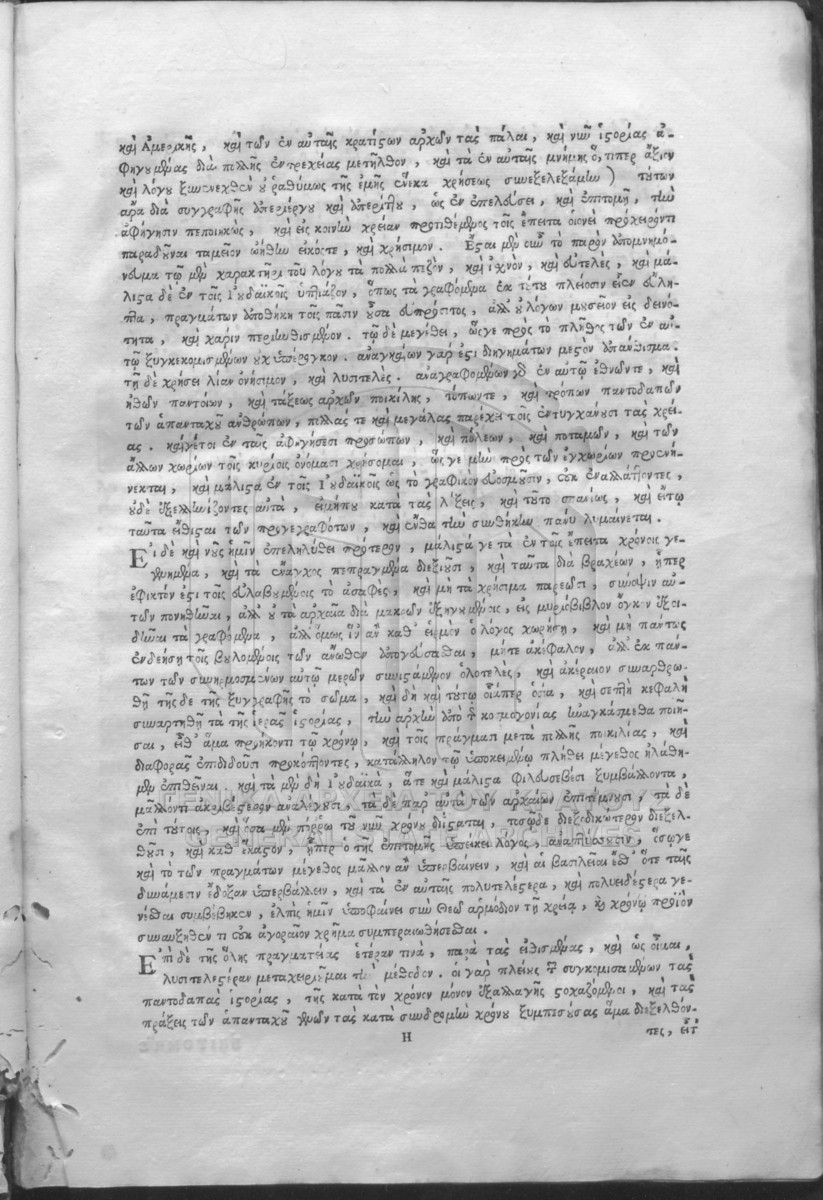 καὶ Ἀμερικῆς, καὶ τῶν ἐν αὐταῖς κρατίστων ἀρχῶν τὰς πάλαι, καὶ νῦν ἱστορίας ἀ-
φηγουμένας διὰ πολλῆς ἐντρεχείας μετῆλθον, καὶ τὰ ἐν αὐταῖς μνήμης ὅ, τιπερ ἄξιον
καὶ λόγου ξυνενεχθὲν οὐ ῥαθύμως τῆς ἐμῆς ἕνεκα χρήσεως συνεξελεξάμην) τούτων
ἄρα διὰ συγγραφῆς ἀπεριέργου καὶ ἀπερίττου, ὡς ἐν ἐπελεύσει, καὶ ἐπιτομῇ, τὴν
ἀφήγησιν πεποιηκὼς, καὶ εἰς κοινὴν χρείαν προτιθέμενος τοῖς ἔπειτα οἱονεὶ πρόχειρόν τι
παραδοῦναι ταμεῖον ᾠήθην εἰκότως, καὶ χρήσιμον. Ἔσται μὲν οὖν τὸ παρὸν ἀπομνημό-
νευμα τῷ μὲν χαρακτῆρι τοῦ λόγου τὰ πολλὰ πεζὸν, καὶ ἰσχνὸν, καὶ εὐτελὲς, καὶ μά-
λιστα δὲ ἐν τοῖς Ἰουδαϊκοῖς ὑπτιάζον, ὅπως τὰ γραφόμενα ἐκ τούτου πλείοσιν εἶεν εὔλη-
πτα, πραγμάτων ἀποθήκη τοῖς πᾶσιν οὖσα εὐπρόσιτος, ἀλλ' οὐ λόγων μουσεῖον εἰς δεινό-
τητα, καὶ χάριν περιηνθισμένον. τῷ δὲ μεγέθει, ὥς γε πρὸς τὸ πλῆθος τῶν ἐν αὐ-
τῷ ξυγκεκομισμένων οὐχ ὑπέρογκον. ἀναγκαίων γάρ ἐστι διηγημάτων μεστὸν ἀπάνθισμα.
τῇ δὲ χρήσει λίαν ὀνήσιμον, καὶ λυσιτελές. ἀναγραφομένων γὰρ ἐν αὐτῷ ἐθνῶντε, καὶ
ἠθῶν παντοίων, καὶ τάξεως ἀρχῶν ποικίλης, τόπωντε, καὶ τρόπων παντοδαπῶν
τῶν ἁπανταχοῦ ἀνθρώπων, πολλάς τε καὶ μεγάλας παρέχει τοῖς ἐντυγχάνουσι τὰς χρεί-
ας. καίγέτοι ἐν ταῖς ἀφηγήσεσι προσώπων, καὶ πόλεων, καὶ ποταμῶν, καὶ τῶν
ἄλλων χωρίων τοῖς κυρίοις ὀνόμασι χρήσομαι, ὥς γε μὴν πρὸς τῶν ἐγχωρίων προενή-
νεκται, καὶ μάλιστα ἐν τοῖς Ἰουδαϊκοῖς ὡς τὸ γραφικὸν εὔοσμουσιν, οὐκ ἐναλλάττοντες,
οὐδὲ ἐξελληνίζοντες αὐτὰ, εἰμήπου κατὰ τὰς λήξεις, καὶ τοῦτο σπανίως, καὶ εἴπῃ
ταῦτα εἴθισται τῶν προγεγραφότων, καὶ ἔνθα τὴν συνθήκην πάνυ λυμαίνεται.
Εἰ δὲ καὶ νοῦς ἡμῖν ἐπεληλύθει πρότερον, μάλιστά γε τὰ ἐν τοῖς ἔπειτα χρόνοις γε-
γενημένα, καὶ τὰ ἔναγχος πεπραγμένα διεξιοῦσι, καὶ ταῦτα διὰ βραχέων, ᾗπερ
ἐφικτὸν ἐστι τοῖς εὐλαβουμένοις τὸ ἀσαφὲς, καὶ μὴ τὰ χρήσιμα παρεῶσι, σύνοψιν αὐ-
τῶν πονηθῆναι, ἀλλ' οὐ τὰ ἀρχαῖα διὰ μακρῶν ἐξηγουμένοις, εἰς μυριόβιβλον ὄγκον ἐξοι-
δῆναι τὰ γραφόμενα, ἀλλ' ὅμως ἵν' ἂν καθ' εἱρμὸν ὁ λόγος χωρήσῃ, καὶ μὴ παντως
ἐνδεήσῃ τοῖς βουλομένοις τῶν ἄνωθεν ἀπογεύσασθαι, μήτε ἀκέφαλον, ἀλλ' ἐκ πάν-
των τῶν συνηρμοσμένων αὐτῷ μερῶν συνιστάμενον ὁλοτελὲς, καὶ ἀκέραιον συναρθρω-
θῇ τῆςδε τῆς ξυγγραφῆς τὸ σῶμα, καὶ δὴ καὶ τούτῳ οἷάπερ ὁσία, καὶ σεπτὴ κεφαλὴ
συναρτηθῇ τὰ τῆς ἱερᾶς ἱστορίας, τὴν ἀρχὴν ἀπὸ τῆς κοσμογονίας ἠναγκάσμεθα ποιῆ-
σαι, εἶθ' ἅμα προήκοντι τῷ χρόνῳ, καὶ τοῖς πράγμασι μετὰ πολλῆς ποικιλίας, καὶ
διαφορᾶς ἐπιδιδοῦσι προκόπτοντες, κατάλληλον τῷ ὑποκειμένῳ πλήθει μέγεθος ἠλάθη-
μεν ἐπιθεῖναι. καὶ τὰ μὲν δὴ Ἰουδαϊκὰ, ἅτε καὶ μάλιστα φιλευσεβέσι ξυμβάλλοντα,
μᾶλλόν τι ἀκριβέστερον ἀναλέγουσι, τὰ δὲ παρ' αὐτὰ τῶν ἀρχαίων ἐπιτέμνουσι, τὰ δὲ
ἐπὶ τούτοις, καὶ ὅσα μὲν πόρρω τοῦ νῦν χρόνου διέσταται, τοσῷδε διεξοδικώτερον διεξελ-
θοῦσι, καὶ καθ' ἕκαστον, ᾗπερ ὁ τῆς ἐπιτομῆς ὑπείκει λόγος, ἀναπτύουσιν, ὅσωγε
καὶ τὸ τῶν πραγμάτων μέγεθος μᾶλλον ἂν ὑπερβαίνειν, καὶ αἱ βασιλεῖαι ἔσθ' ὅτε ταῖς
δυνάμεσιν ἔδοξαν ὑπερβάλλειν, καὶ τὰ ἐν αὐταῖς πολυτελέστερα, καὶ πολυειδέστερα γε-
νέσθαι συμβέβηκεν, ἐλπὶς ἡμῖν ὑποφαίνει σὺν Θεῷ ἁρμόδιον τῇ χρείᾳ, καὶ χρόνῳ προϊὸν
συναυξηθέν τι οὐκ ἀγοραῖον χρῆμα συμπεραιωθήσεσθαι.
Ἐπὶ δὲ τῆς ὅλης πραγματείας ἑτέραν τινὰ, παρὰ τὰς εἰθισμένας, καὶ ὡς οἶμαι,
λυσιτελεστέραν μεταχειριοῦμαι τὴν μέθοδον. οἱ γὰρ πλείους τῶν συγκομισαμένων τὰς
παντοδαπὰς ἱστορίας, τῆς κατὰ τὸν χρόνον μόνον ἐξαλλαγῆς στοχαζόμενοι, καὶ τὰς
πράξεις τῶν ἁπανταχοῦ γενῶν τὰς κατὰ συνδρομὴν χρόνου ξυμπεσούσας ἅμα διεξελθόν-
Η
τες, εἶτ
ΓΕΝΙΚΑ ΑΡΧΕΙΑ ΤΟΥ ΚΡΑΤΟΥΣ
GENERAL STATE ARCHIVES